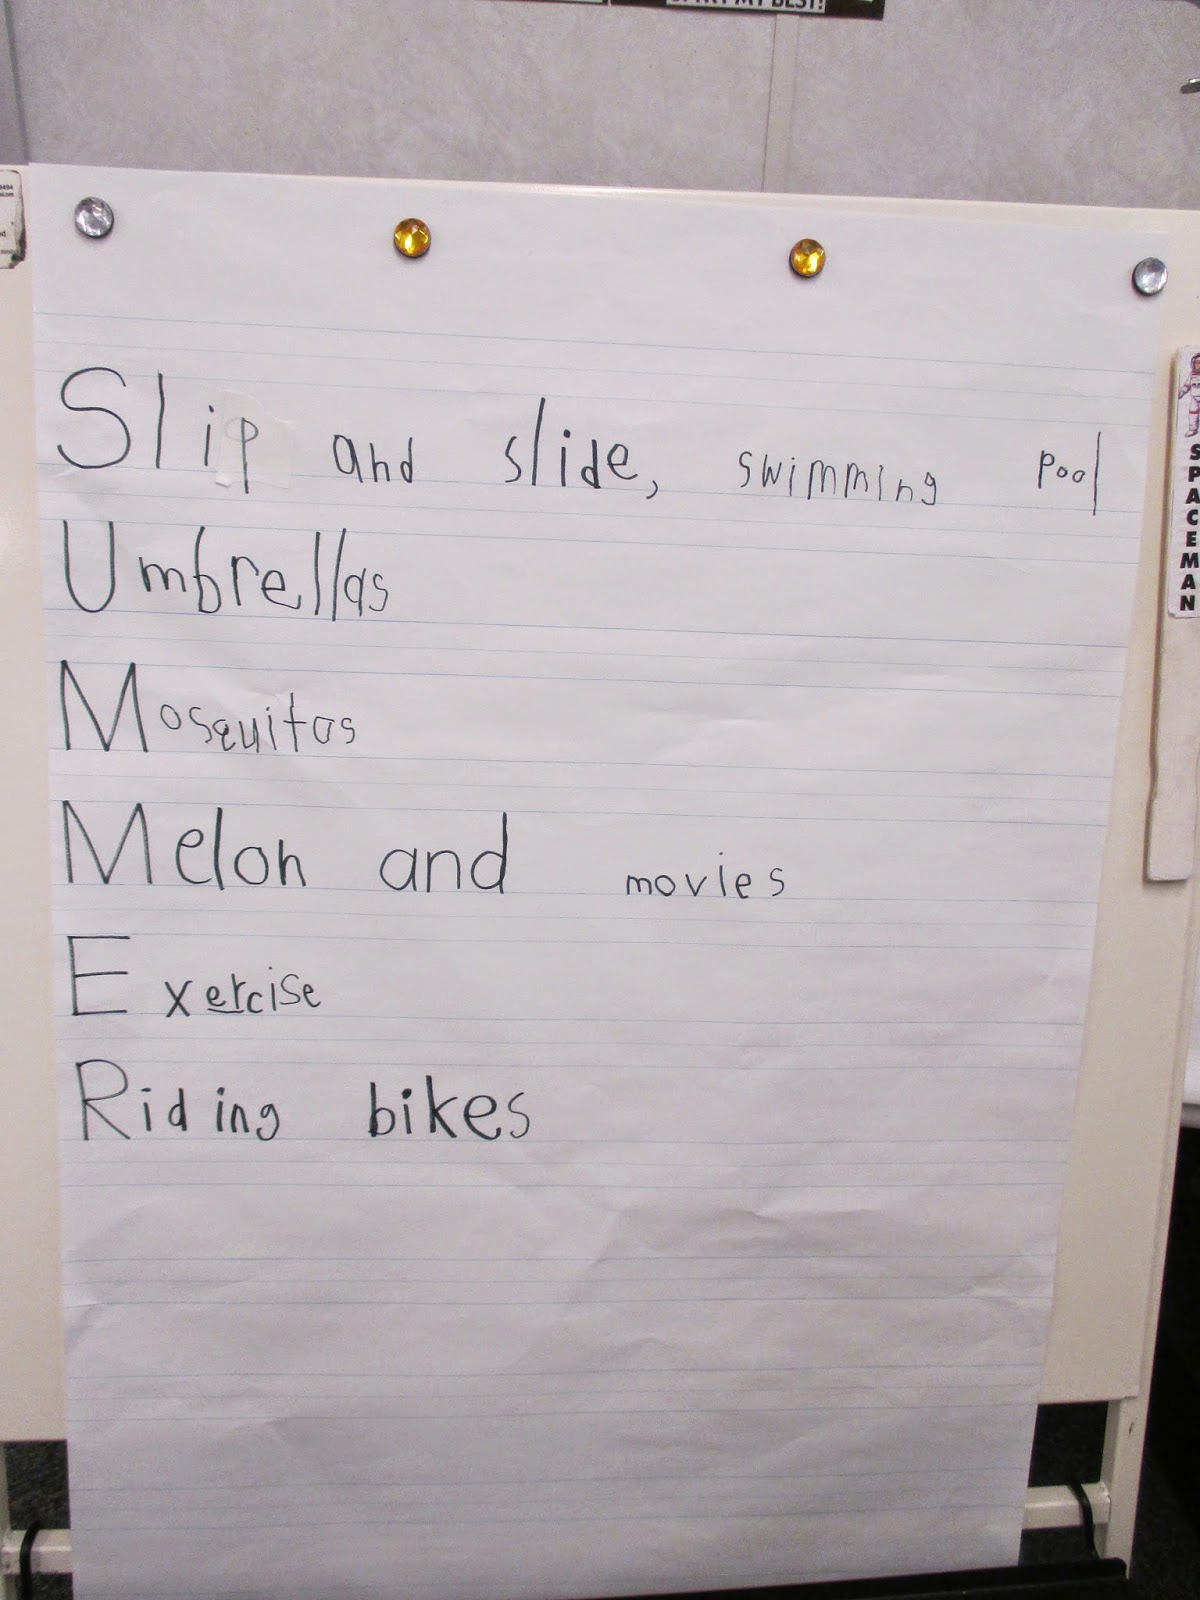 MY BEST!
Slip and slide, swimming pool
Umbrellas
Mosquitos
Melon and movies
Exercise
Riding bikes
SPACEMAN